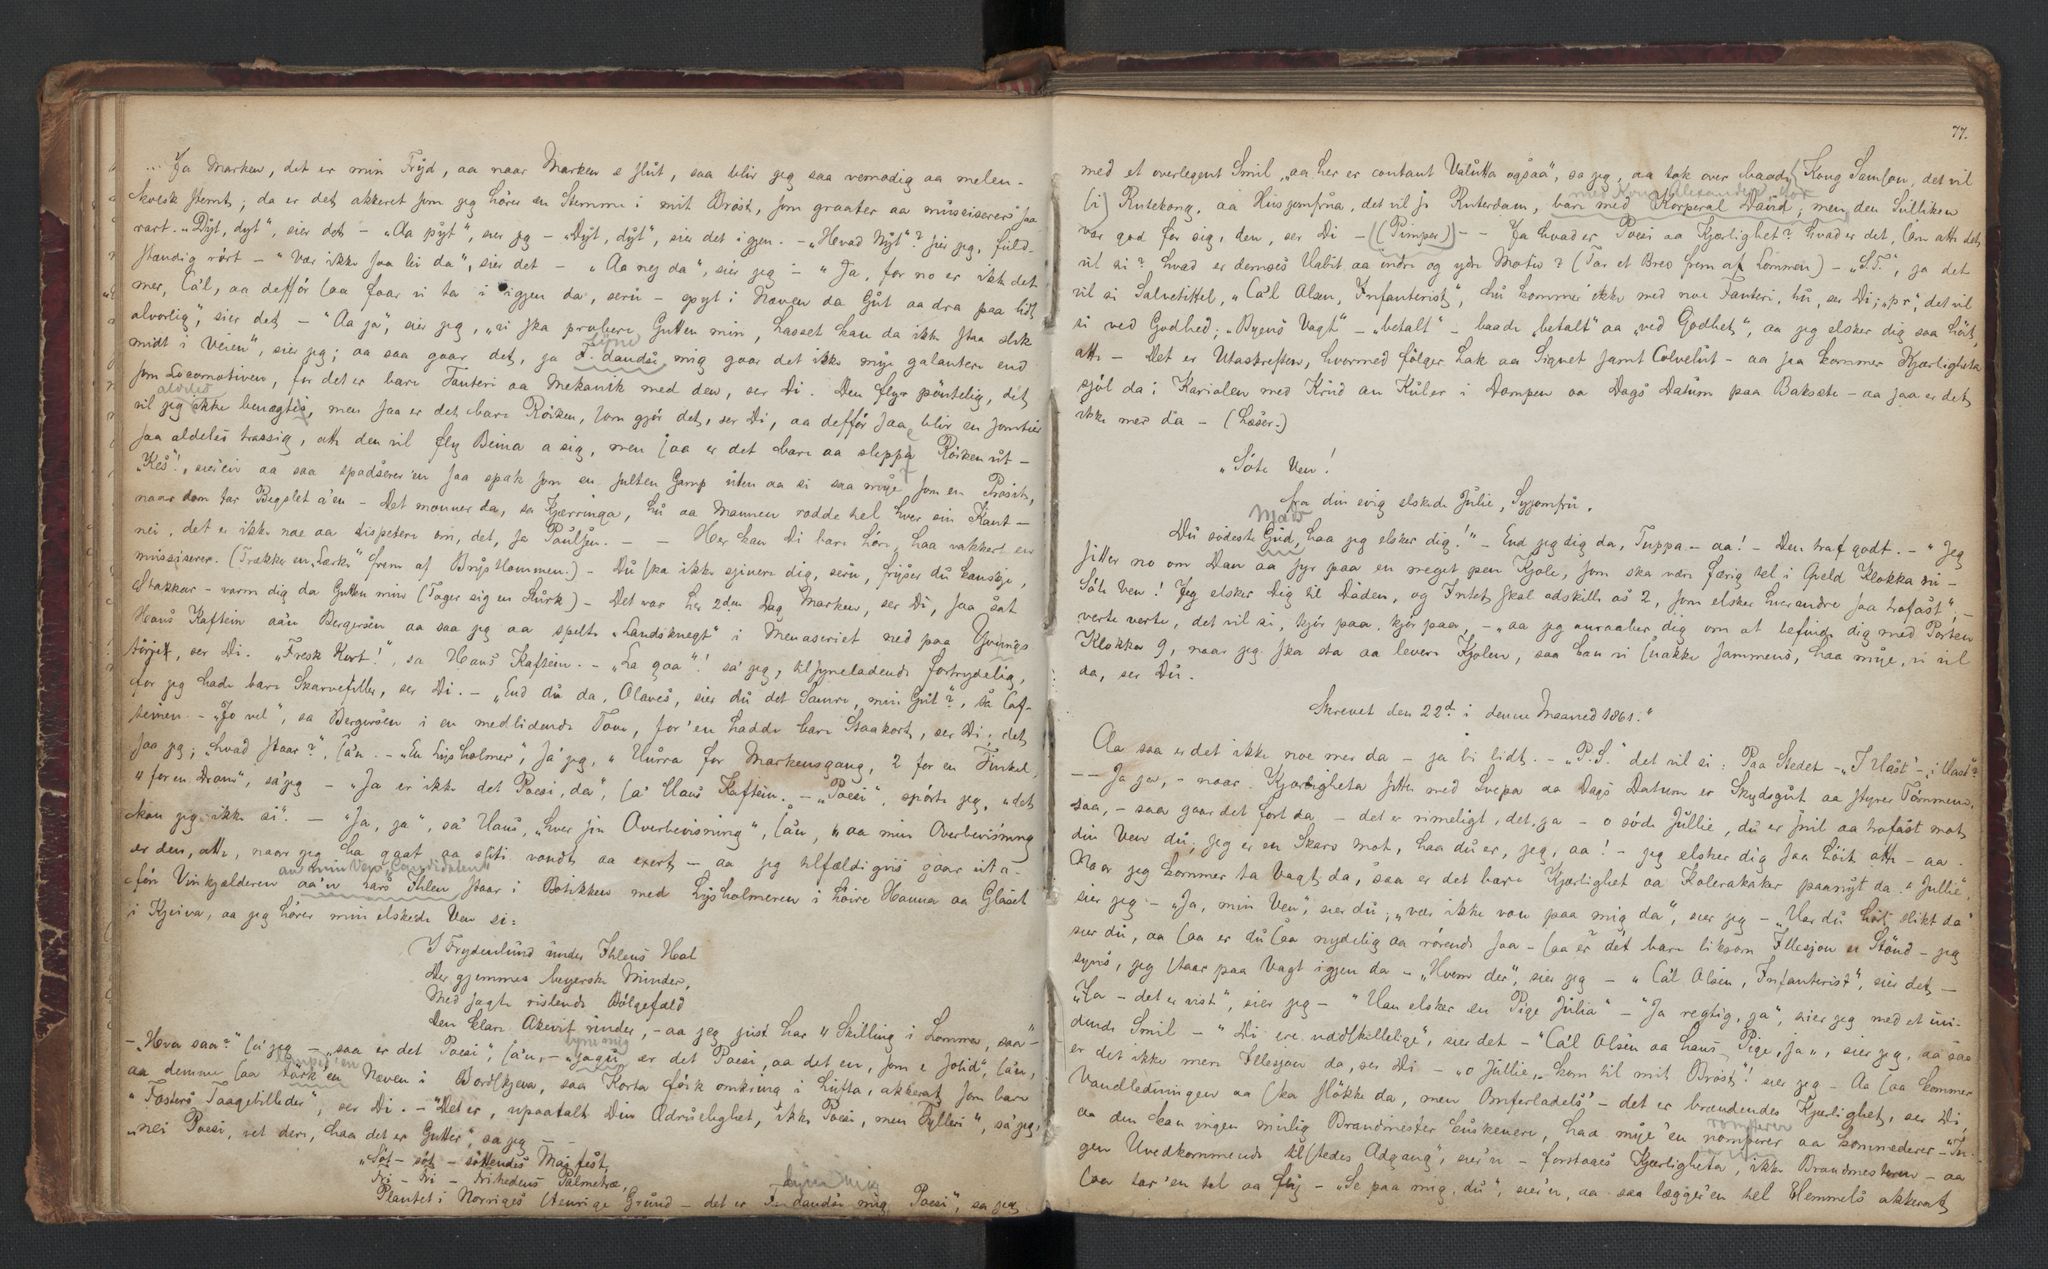 ... Ja Marken, det er min Fryd, aa naar Marken e slut, saa blir jeg saa vemodig aa melen-
kolsk stemt; da er det akkeret som jeg hører en Stemme i mit Brøst, som graater aa mussiserer saa
rart. „Dyt, dyt", sier det - „Aa pyt", sier jeg - „Dyt, dyt", sier det igjen. - „Hevad Nyt"? sier jeg, fuld-
stændig rørt - „Vær ikke saa lei da", sier det - „Aa nej da", sier jeg - „Ja, for no er ikke det
mer, Ca'l, aa defför saa faar vi ta i igjen da, serü - spyt i Næven da Gut aa dra paa lidt
alvorlig", sier det - „Aa ja", sier jeg, „vi ska probere, Gutten min, Lasset kan da ikke staa slik
midt i Veien", sier jeg; aa saa gaar det, ja F. dandse mig gaar det ikke mye galantere end
som Locomotiven, for det er bare Fanteri aa Mekanik med den, ser Di. Den flyr pöntelig, det
vil jeg aldeles ikke benægte, men saa er det bare Röiken, som gjör det, ser Di, aa defför saa blir en somtier
saa aldeles trassig, att den vil fly Beina a sig, men saa er det bare aa sleppe Röiken ut -
„Kes"!, sier'en aa saa spadserer'en saa spak som en sulten Gamp uten aa si saa mye som en Prosit,
naar dom tar Begslet a'en - Det monner da, sa Kjærringa, hu aa Mannen rodde hel hver sin Kant -
nei, det er ikke noe aa dispetere om, det, ja Paulsen. - - Her kan Di bare höre, haa vakkert en
mussiserer. (Trækker en „Lærke" frem af Brystlommen.) - Du ska ikke sjenere dig, serü, fryser du kanskje,
Stakkar - varm dig da Gutten min (Tager sig en Slurk) - Det var her 2den Dag Marken, ser Di, saa sat
Hans Kaftein aa'n Bergersen aa saa jeg aa spelte „Landsknegt" i Menaseriet ned paa Youngs
törjet, ser Di. „Fresk Kort!", sa Hans Kaftein. - „La gaa"! sa' jeg, tilsyneladende fortrydelig,
for jeg hade bare Skarvefiller, ser Di. - „End du da, Olaves, sier du det Samme, min Gut"?, sa Caf-
teinen. - „Jo vel", sa Bergersen i en medlidende Tone, for'en hadde bare Staakort, ser Di, det
saa jeg; „hvad staar?", sa'n. - „En Lysholmer", sa' jeg, „Hurra for Markensgang, 2 for en Finkel,
4 for en Dram", sa' jeg - „Ja er ikke det Poesi, da", sa' Hans Kaftein. - „Poesi", spörte jeg, „det
kan jeg ikke si". - „Ja, ja", sa' Hans, „hver sin Overbevisning", sa'n, „aa min Overbevisning
er den, att, naar jeg ha gaat aa sliti vondt aa exert - aa jeg tilfældigvis gaar uta-
för Vinkjælderen aa min Ven Candidaten aa'n Lars Ihlen staar i Botikken med Lysholmeren i höire Hanna aa Glaset
i Kjeiva, aa jeg hörer min elskede Ven si:
I Frydenlund under Ihlens Hal
Der gjemmes Meyerske Minder,
Med sagte rislende Bölgefald
Den klare Akevit rinder, - aa jeg just har 4 Skilling i Lommen, saa" -
- „Hva saa"? sa' jeg - „saa er det Poesi", sa'n, - „jagu byme mig er det Poesi, aa det en, som e solid", sa'n,
aa demme saa törk'en Næven i Bordskjeva, saa Korta föik omkring i Lufta, akkerat som bare
„Fosters Taagebilleder", ser Di. - „Det er, upaatalt Din Ædruelighet, ikke Poesi, men Fylleri", sa' jeg,
„nei Poesi, vet dere, haa det er Gutter", sa jeg - -
„Söt - söt - söttendes Maj fest,
Fri - Fri - Frihedens Palmetræ,
Plantet i Norriges stenrige Grund - det er F. dandse byme mig mig Poesi", sa jeg
77.
med et overlegent Smil, „aa her er contant Valutta ogsaa", sa jeg, aa tok over baade Kong Samson, det vil
si Rutekong, aa Husjomfrua, det vil si Ruterdam, bare med Korperal David, men den Sulliken
var god for sig, den, ser Di - (Pimper) - - Ja hvad er Poesi aa Kjærlighet? hvad er det, som att det
vil si? hvad er demses Habit aa indre og ydre Motiv? (Tar et Brev frem af Lommen) - „S.T.", ja det
vil si Salvetittel, „Ca'l Olsen, Infanterist", hu kommer ikke med noe Fanteri, hu, ser Di; „pr", det vil
si ved Godhed; „Byens Vagt" - „betalt" - baade „betalt" aa „ved Godhet", aa jeg elsker dig saa höit,
att - Det er Utaskreften, hvormed fölger Lak aa Signet samt Colvelut - aa saa kommer Kjærligheta
sjöl da i Kariolen med Krud an Kuler i Dampen aa Dags Datum paa Baksete - aa saa er det
ikke mer da - (Læser.)
„Söte Ven!
fra din evig elskede Julie, Syjomfru.
Du södeste Gud, Mads haa jeg elsker dig!" - End jeg dig da, Tuppa - aa! - Den traf godt. - „Jeg
sitter no om Dan aa syr paa en meget pen Kjole, som ska være færig tel i Qveld Klokka ni -
Söte Ven! Jeg elsker Dig til Döden, og Intet skal adskille os 2, som elsker hverandre saa trofast", -
verte verte, det vil si, kjör paa, kjör paa, - „aa jeg anraaber dig om at befinde dig med Porten
Klokka 9, naar jeg ska sta aa levere Kjolen, saa kan vi snakke sammens, haa mye, vi vil
da, ser Du.
Skrevet den 22d. i denne Maaned 1861."
Aa saa er det ikke noe mer da - ja bi lidt. - „P.S." det vil si: Paa Stedet - „I Hast" - i Hast?
- - Ja ja, - naar Kjærligheta sitter med Svepa aa Dags Datum er Skydsgut aa styrer Tömmene,
saa, - saa gaar det fort da - det er rimeligt, det, ja - o söde Jullie, du er snil aa trofast mot
din Ven du, jeg er en Skarv mot, haa du er, jeg, aa! - jeg elsker dig saa Höit att - aa -
Naar jeg kommer ta Vagt da, saa er det bare Kjærlighet aa Kolerakaker paanyt da. „Jullie",
sier jeg - „Ja, min Ven", sier du; „vær ikke von paa mig da", sier jeg - „Har du hört slikt da"
sier du, aa saa er du saa nydelig aa rörende saa - saa er det bare liksom Illesjon en Stönd - jeg
synes, jeg staar paa Vagt igjen da - „Hvem der", sier jeg - „Ca'l Olsen, Infanterist", sier det -
„Ja - det er vist", sier jeg - „Han elsker en Pige Julia" - „Ja regtig, ja", sier jeg med et ini-
dende Smil - „Di ere uadskillelige", sier det - „Ca'l Olsen aa hans Pige, ja", sier jeg, aa saa
er det ikke mere Illesjon da, ser Di - „o Jullie, kom til mit Bröst"! sier jeg - Aa saa kommer
Vandledningen aa ska slökke da, men Omferladels' - det er brændendes Kjærlighet, ser Di,
aa den kan ingen mulig Brandmester luskenere, haa mye'en romperer aa kommederer - „In-
gen Uvedkommende tilstedes Adgang", sier'n - forstaaes Kjærligheta, ikke Brandmesteren - aa
saa tar'en tel aa fly - „Se paa mig, du", sier'n, aa saa lægger'en tel Himmels akkerat